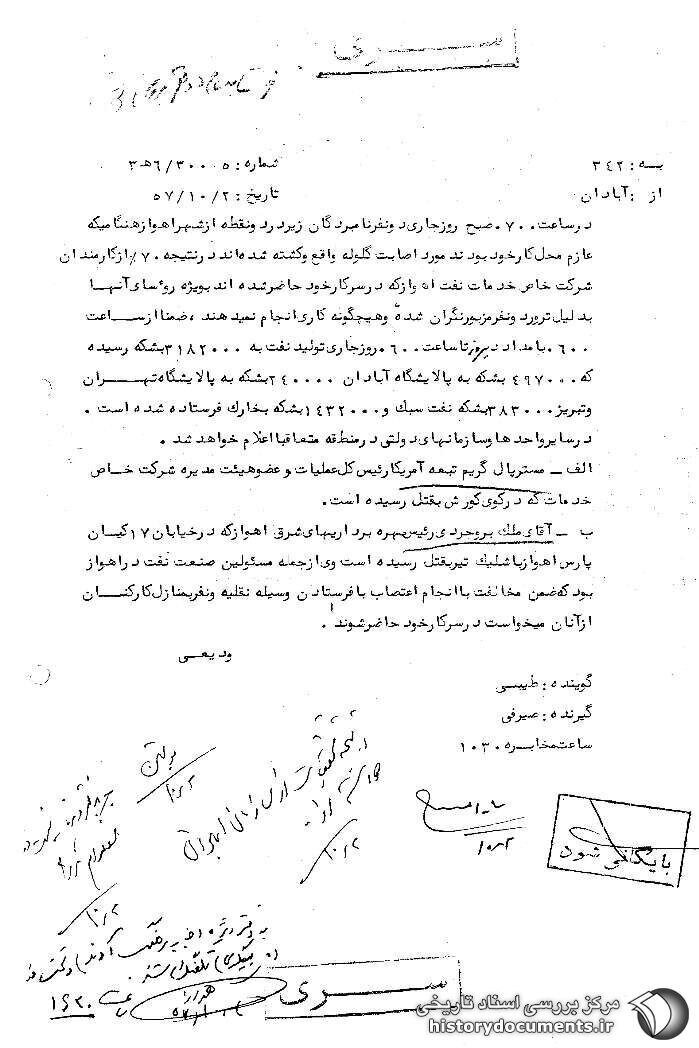 سری
به: ۳۴۲
شماره: ۳۰۰۵/۶ه‍۳
از: آبادان
تاریخ: ۵۷/۱۰/۲
در ساعت ۷۰۰ صبح روز جاری دو نفر نامبردگان زیر در دو نقطه از شهر اهواز هنگامیکه
عازم محل کار خود بودند مورد اصابت گلوله واقع و کشته شده اند در نتیجه ۷۰٪ از کارمندان
شرکت خاص خدمات نفت اهواز که در سرکار خود حاضر شده اند بویژه روسای آنها
بدلیل ترور دو نفر مزبور نگران شده و هیچگونه کاری انجام نمیدهند، ضمنا از ساعت
۶۰۰ بامداد دیروز تا ساعت ۶۰۰ روز جاری تولید نفت به ۳۱۸۲۰۰۰ بشکه رسیده
که ۴۹۷۰۰۰ بشکه به پالایشگاه آبادان ۲۴۰۰۰۰ بشکه به پالایشگاه تهران
و تبریز ۳۸۳۰۰۰ بشکه نفت سبک و ۱۴۳۲۰۰۰ بشکه بخارک فرستاده شده است.
در سایر واحدها و سازمانهای دولتی در منطقه متعاقبا اعلام خواهد شد.
الف ـ مستر پال گریم تبعه آمریکا رئیس کل عملیات و عضو هیئت مدیره شرکت خاص
خدمات که در کوی کورش بقتل رسیده است.
ب ـ آقای ملک بروجردی رئیس بهره برداریهای شرق اهواز که در خیابان ۱۷ کیان
پارس اهواز با شلیک تیر بقتل رسیده است وی از جمله مسئولین صنعت نفت در اهواز
بود که ضمن مخالفت با انجام اعتصاب با فرستادن وسیله نقلیه و نفر بمنازل کارکنان
از آنان میخواست در سرکار خود حاضر شوند.
ودیعی
گوینده: طبیسی
گیرنده: صیرفی
ساعت مخابره ۱۰۳۰
۱۰/۲
۱۰/۲
۱۰/۲
۱۰/۲
بایگانی شود
ساعت ۱۶۳۰
سری
مرکز بررسی اسناد تاریخی
historydocuments.ir